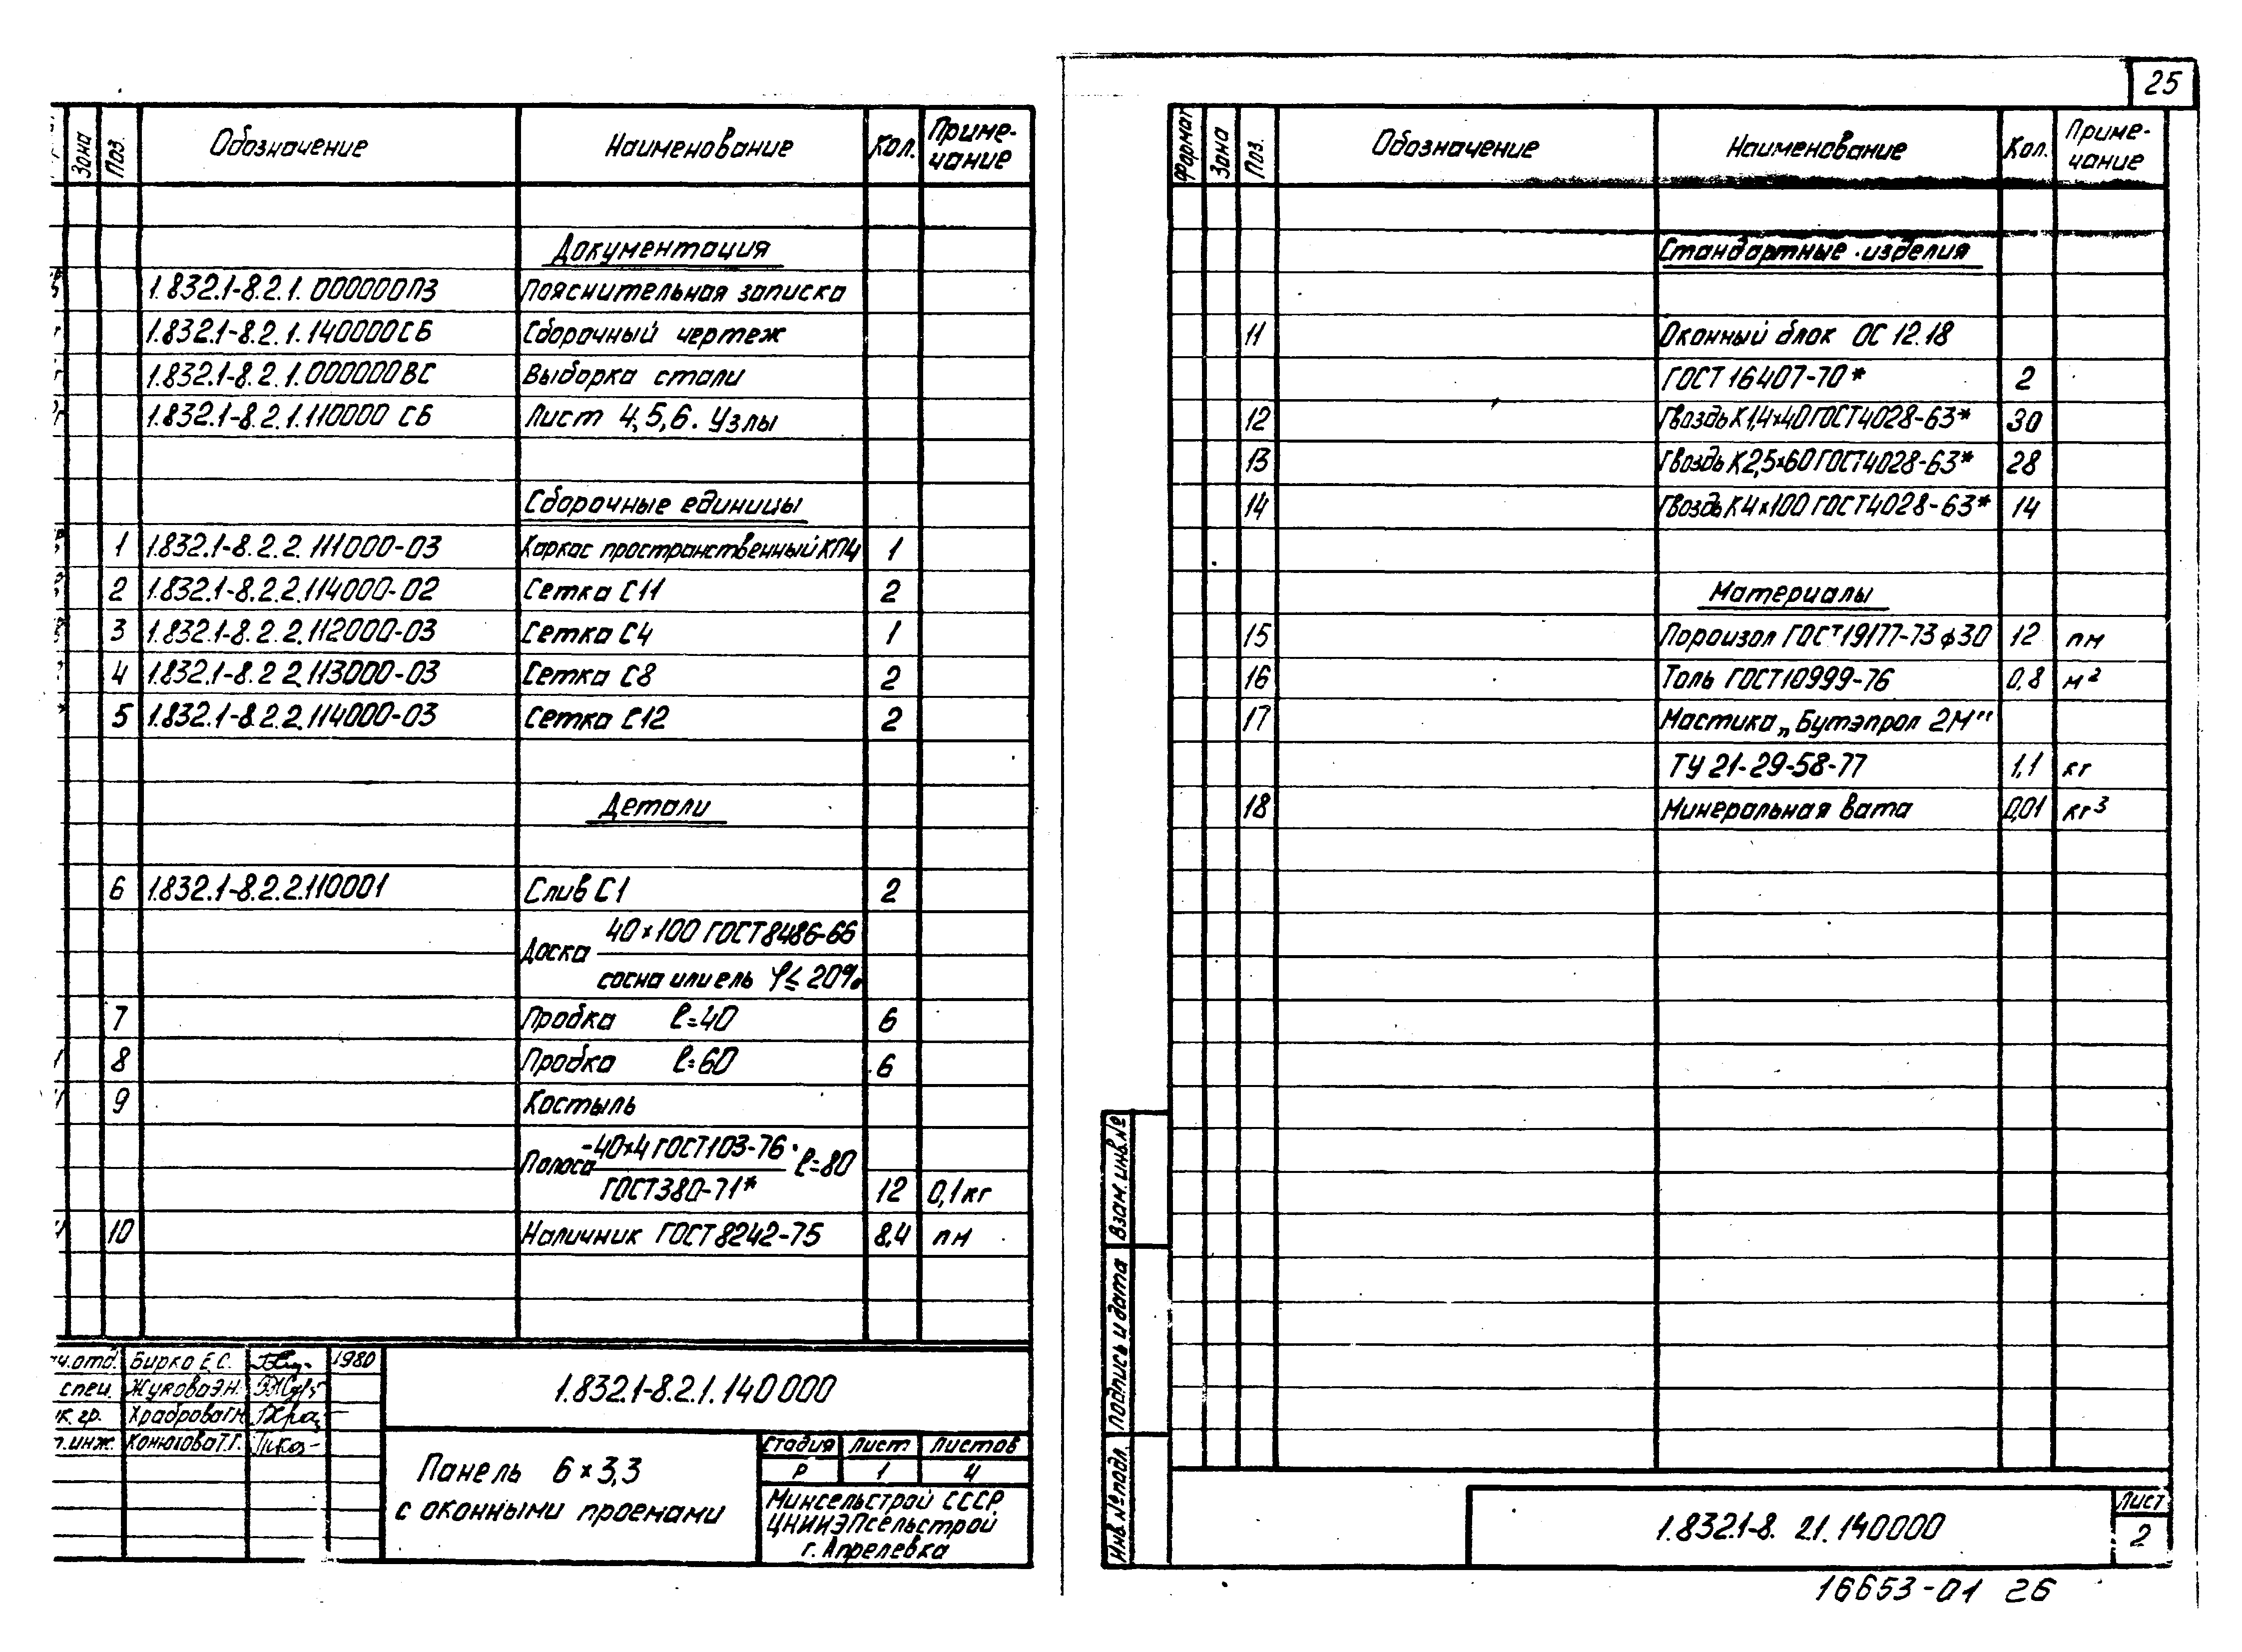 Зона Поз. Обозначение Наименование Кол. Приме-
чание
Документация
1.832.1-8.2.1.000000ПЗ Пояснительная записка
1.832.1-8.2.1.140000СБ Сборочный чертеж
1.832.1-8.2.1.000000ВС Выборка стали
1.832.1-8.2.1.110000 СБ Лист 4,5,6. Узлы
Сборочные единицы
1 1.832.1-8.2.2.111000-03 Каркас пространственный КП4 1
2 1.832.1-8.2.2.114000-02 Сетка С11 2
3 1.832.1-8.2.2.112000-03 Сетка С4 1
4 1.832.1-8.2 2.113000-03 Сетка С8 2
5 1.832.1-8.2.2.114000-03 Сетка С12 2
Детали
6 1.832.1-8.2.2.110001 Слив С1 2
Доска 40×100 ГОСТ 8486-66
сосна или ель φ≤20%
7 Пробка ℓ=40 6
8 Пробка ℓ=60 6
9 Костыль
Полоса -40×4 ГОСТ103-76 ℓ=80
ГОСТ380-71* 12 0,1кг
10 Наличник ГОСТ 8242-75 8,4 пм
ч.отд. Бирко Е.С. 1980
спец. Жукова Э.Н.
к. гр. Храброва Г.Н.
инж. Конюхова Т.Г.
1.832.1-8.2.1.140000
Панель 6×3,3
с оконными проемами
Стадия Лист Листов
Р 1 4
Минсельстрой СССР
ЦНИИЭПсельстрой
г. Апрелевка
25
Формат Зона Поз. Обозначение Наименование Кол. Приме-
чание
Стандартные изделия
11 Оконный блок ОС 12.18
ГОСТ 16407-70* 2
12 Гвоздь К1,4×40 ГОСТ4028-63* 30
13 Гвоздь К2,5×60 ГОСТ4028-63* 28
14 Гвоздь К4×100 ГОСТ4028-63* 14
Материалы
15 Пороизол ГОСТ19177-73 ф30 12 пм
16 Толь ГОСТ10999-76 0,8 м²
17 Мастика „Бутэпрол 2М"
ТУ 21-29-58-77 1,1 кг
18 Минеральная вата 0,01 кг³
Взам. инв.№
Подпись и дата
Инв.№подл.
1.832.1-8. 2.1.140000
Лист
2
16653-01 26